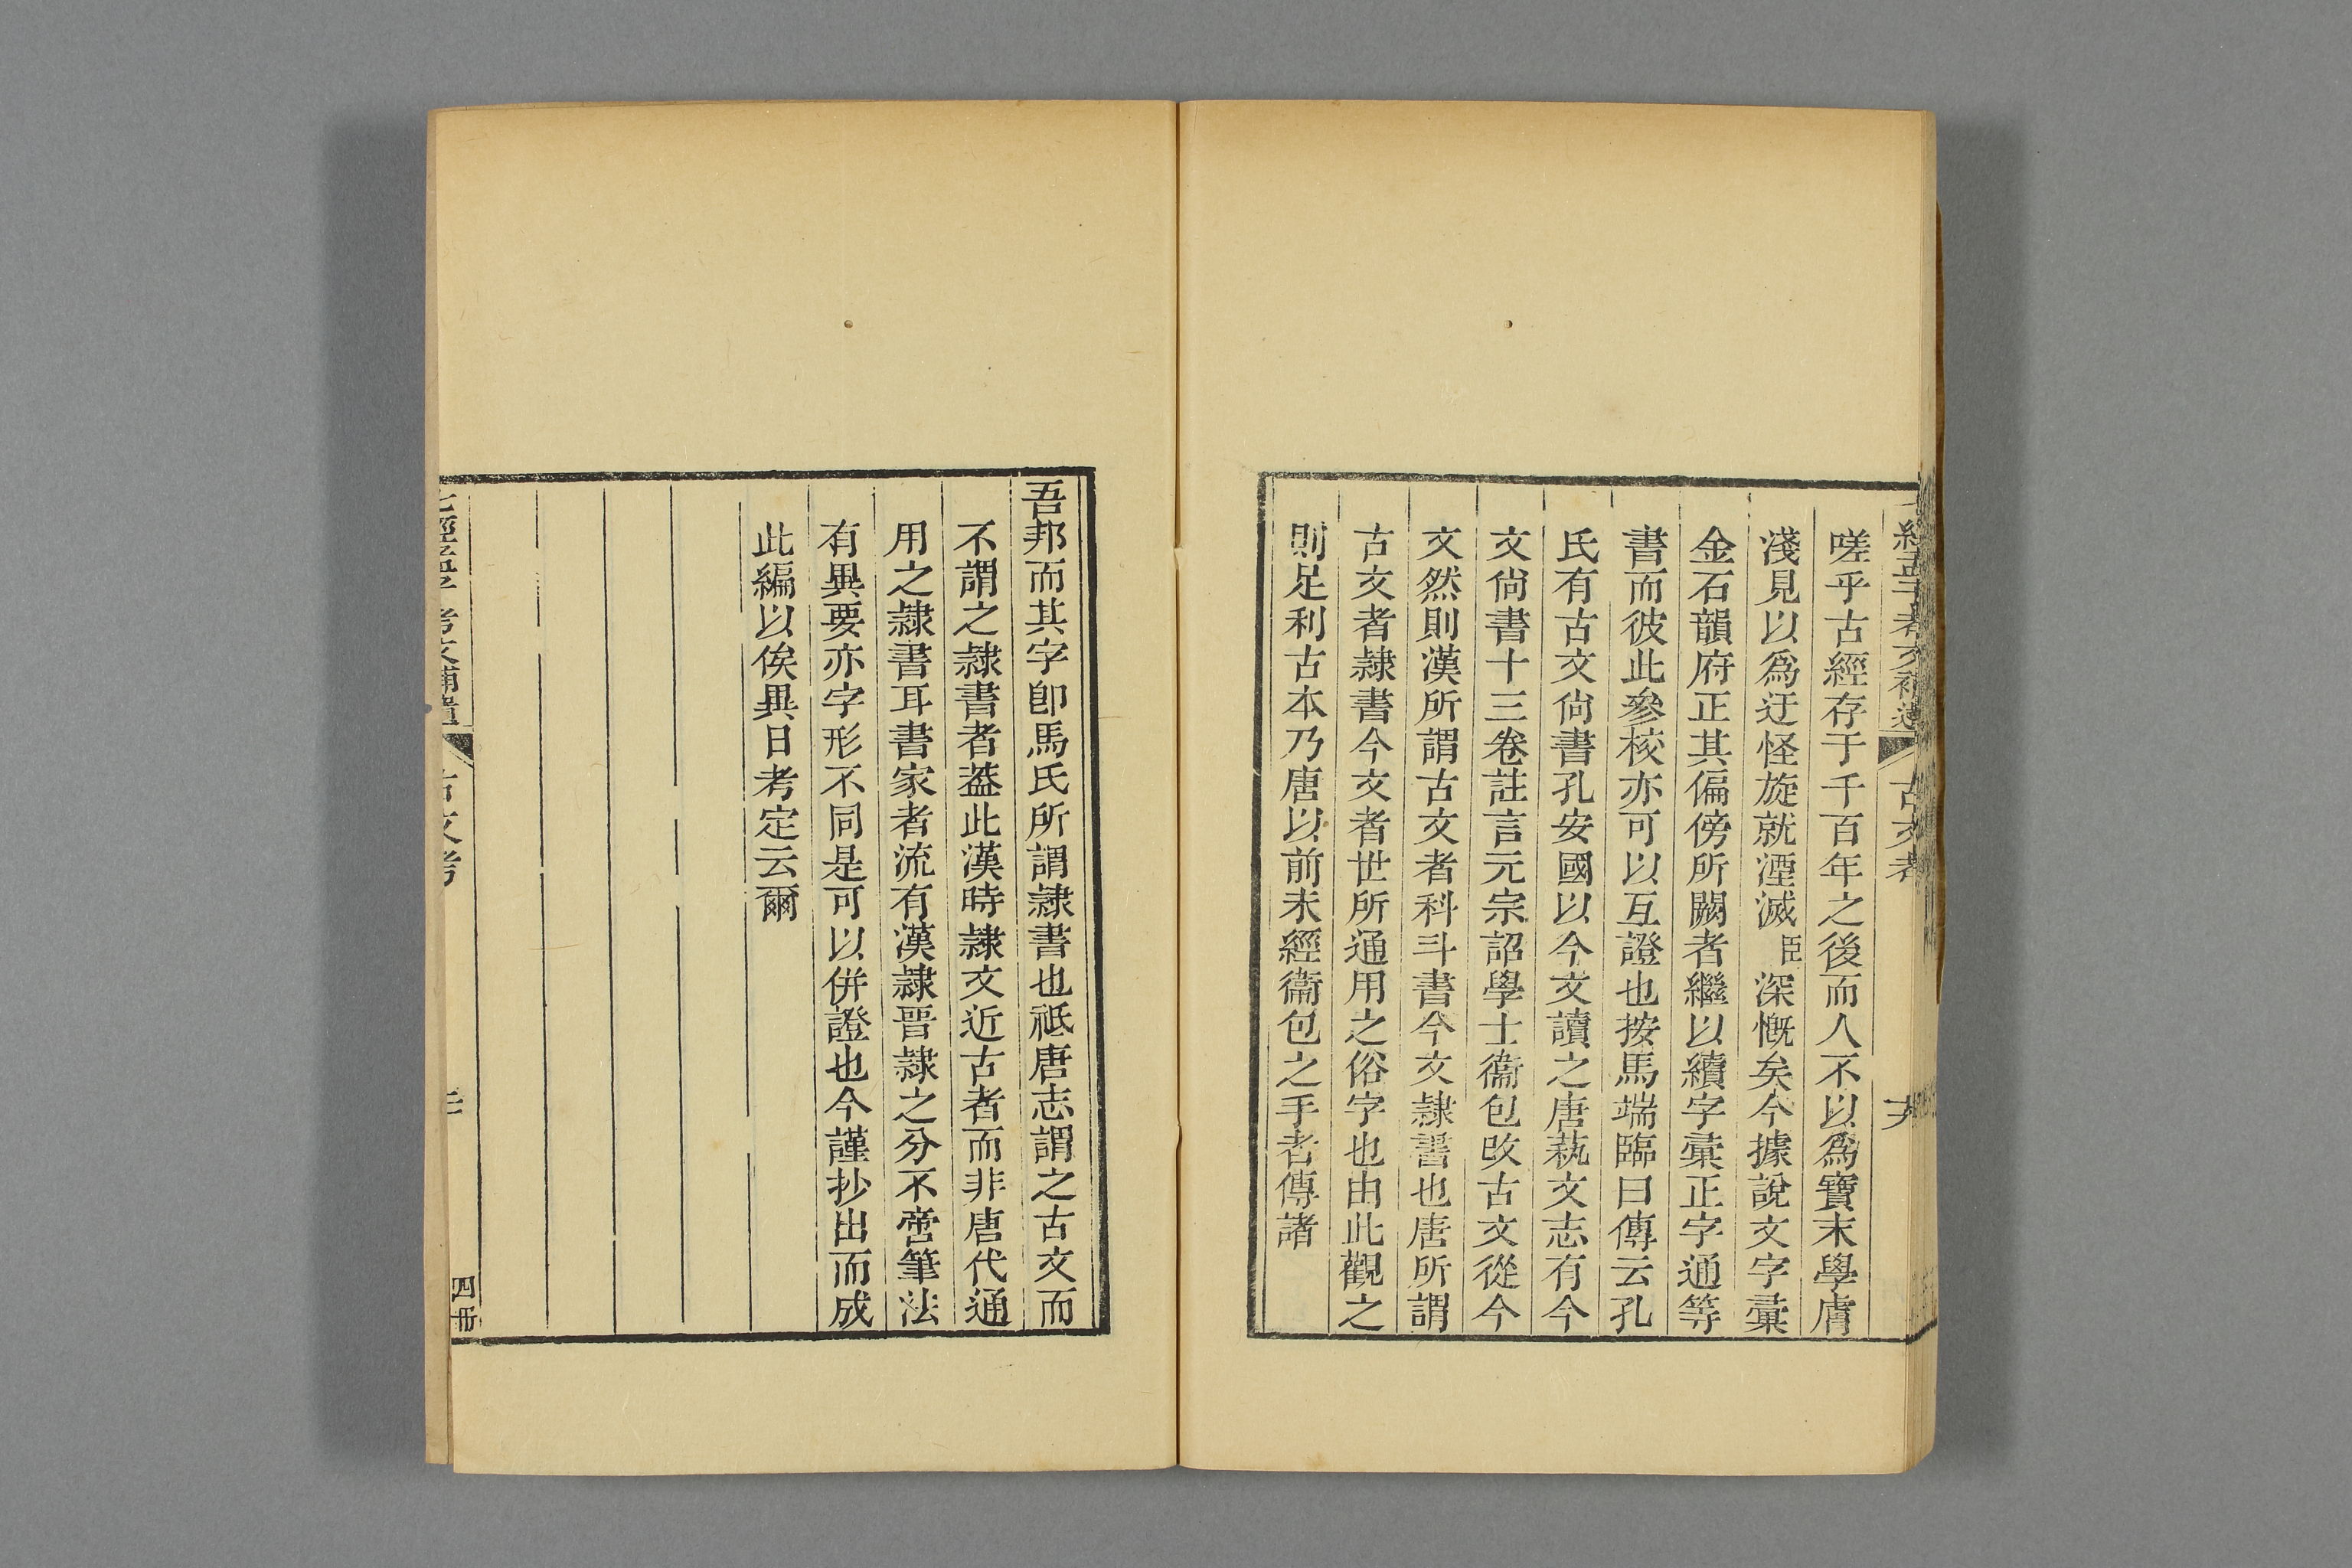 嗟乎古經存于千百年之後而人不以爲寶末學膚
淺見以爲迂怪旋就湮滅臣深慨矣今據說文字彙
金石韻府正其偏傍所闕者繼以續字彙正字通等
書而彼此參核亦可以互證也按馬端臨曰傳云孔
氏有古文尙書孔安國以今文讀之唐藝文志有今
文尙書十三卷註言元宗詔學士衞包改古文從今
文然則漢所謂古文者科斗書今文隷書也唐所謂
古文者隷書今文者世所通用之俗字也由此觀之
則足利古本乃唐以前未經衞包之手者傳諸
吾邦而其字卽馬氏所謂隷書也祗唐志謂之古文而
不謂之隷書者葢此漢時隷文近古者而非唐代通
用之隷書耳書家者流有漢隷晉隷之分不啻筆法
有異要亦字形不同是可以併證也今謹抄出而成
此編以俟異日考定云爾
七經孟子考文補遺 古文考
四冊